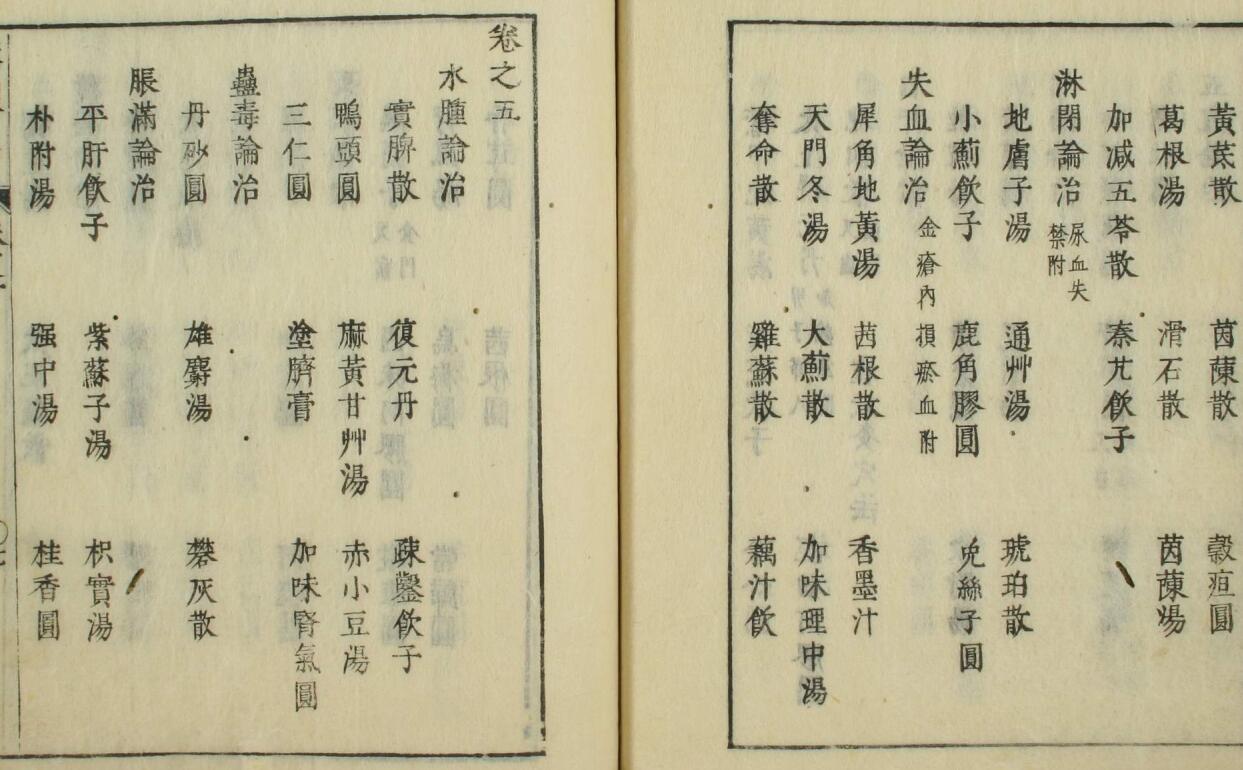 黃芪散 茵蔯散 穀疸圓
葛根湯 滑石散 茵蔯湯
加减五苓散 秦艽飲子
淋閉論治 尿血失禁附
地膚子湯 通艸湯 琥珀散
小薊飲子 鹿角膠圓 兔絲子圓
失血論治 金瘡內損瘀血附
犀角地黃湯 茜根散 香墨汁
天門冬湯 大薊散 加味理中湯
奪命散 雞蘇散 藕汁飲
卷之五
水腫論治
實脾散 復元丹 疎鑿飲子
鴨頭圓 麻黃甘艸湯 赤小豆湯
三仁圓 塗臍膏 加味腎氣圓
蠱毒論治
丹砂圓 雄麝湯 礬灰散
脹滿論治
平肝飲子 紫蘇子湯 枳實湯
朴附湯 强中湯 桂香圓